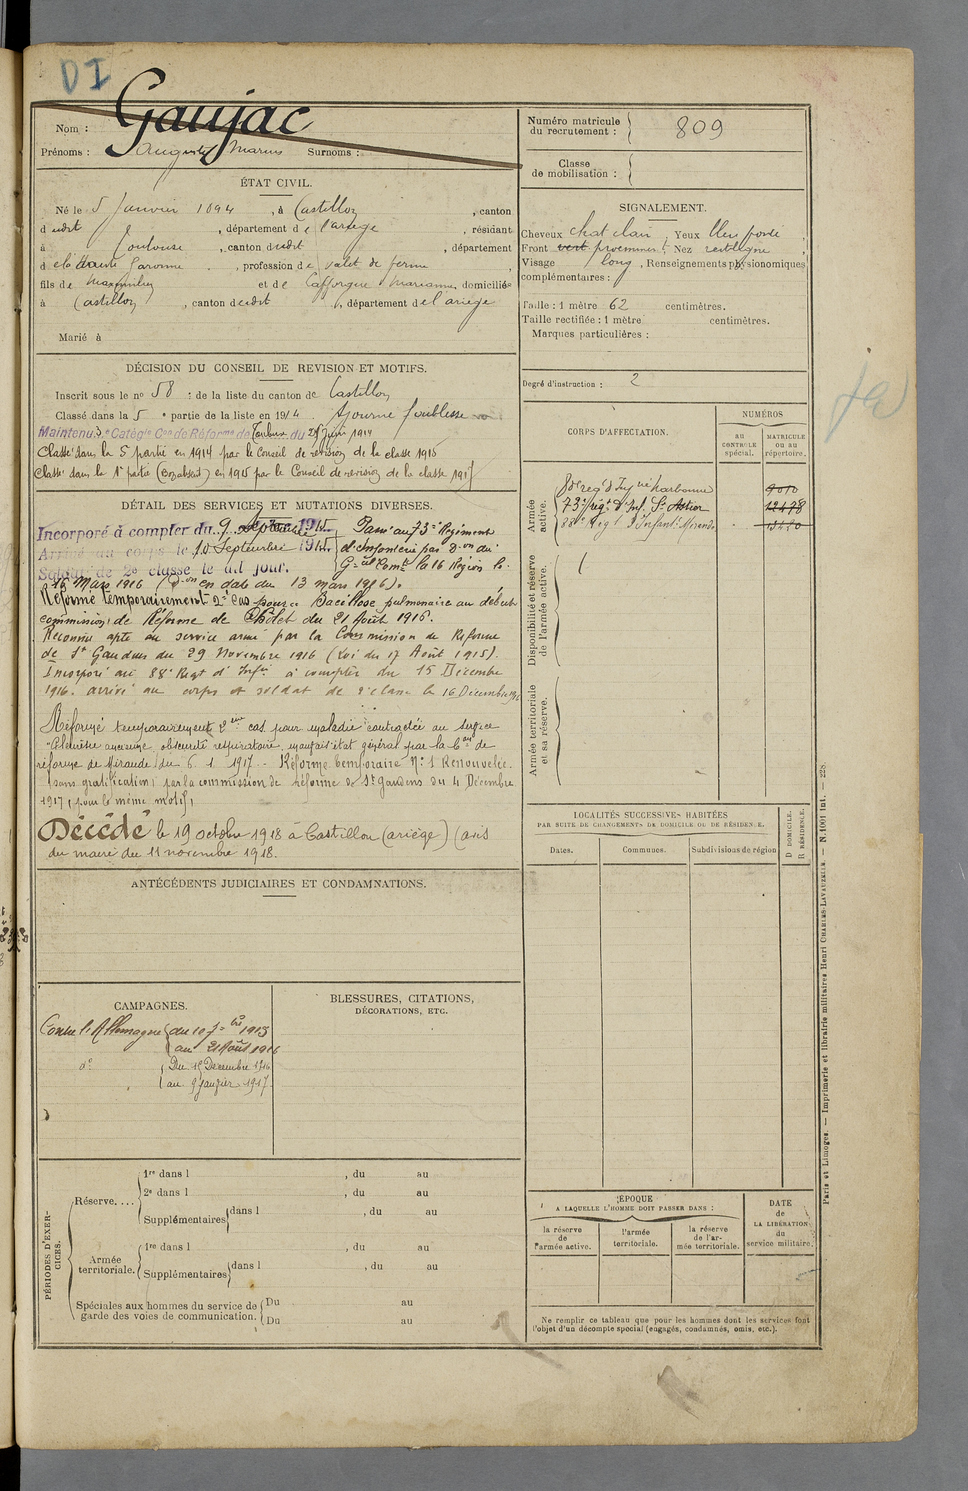 DI
Nom : Gaujac
Prénoms : Auguste Marius Surnoms :
Numéro matricule du recrutement : 809
Classe de mobilisation :
ÉTAT CIVIL.
Né le 5 Janvier 1894, à Castillon, canton
dudit, département de l'ariège, résidant
à Toulouse, canton dudit, département
de la Haute Garonne, profession de valet de ferme
fils de Maximilien et de Lafforgue Marianne, domiciliés
à Castillon, canton dudit, département de l'ariège
Marié à
SIGNALEMENT.
Cheveux chat clair, Yeux bleu foncé,
Front vert proéminent, Nez rectiligne,
Visage long, Renseignements physionomiques
complémentaires :
Taille : 1 mètre 62 centimètres.
Taille rectifiée : 1 mètre centimètres.
Marques particulières :
Degré d'instruction : 2
DÉCISION DU CONSEIL DE REVISION ET MOTIFS.
Inscrit sous le nº 58 de la liste du canton de Castillon
Classé dans la 5e partie de la liste en 1914. Ajourné faiblesse
Maintenu 3e Catégie Con de Réforme de Toulouse du 25 Juin 1914
Classé dans la 5e partie en 1914 par le Conseil de révision de la classe 1916
Classé dans la 1e partie (Bon absent) en 1915 par le Conseil de revision de la classe 1917
DÉTAIL DES SERVICES ET MUTATIONS DIVERSES.
Incorporé à compter du 9 Septembre 1915. Passé au 73e Régiment
Arrivé au corps le 10 Septembre 1915. d'infanterie par Don du
Soldat de 2e classe le dit jour. Gral Comt la 16 Région le
16 Mars 1916 (Don en date du 13 mars 1916).
Réformé temporairement 2e cas pour Bacillose pulmonaire au début
commission de Réforme de Cholet du 21 Août 1916.
Reconnu apte au service armé par la Commission de Réforme
de St Gaudens du 29 Novembre 1916 (Loi du 17 Août 1915).
Incorporé au 88e Regt d'Infie à compter du 15 Décembre
1916. arrivé au corps et soldat de 2e classe le 16 Décembre 1916
Réformé temporairement 2eme cas pour maladie contractée au service
obscurité respiratoire, mauvais état général par la Con de
réforme de Mirande du 6. 1. 1917. Réforme temporaire Nº 1 Renouvelée.
(sans gratification) par la commission de réforme de St Gaudens du 4 Décembre
1917 (pour le même motif)
Décédé le 19 octobre 1918 à Castillon (ariège) (avis
du maire du 11 novembre 1918.
CORPS D'AFFECTATION.
NUMÉROS
AU CONTROLE spécial.
MATRICULE OU AU répertoire.
Armée active.
80e reg d'Infrie Narbonne 9010
73e régt d'Inf. St Astier 12478
88e Regt d'Infanterie Mirande
Disponibilité et réserve de l'armée active.
Armée territoriale et sa réserve.
LOCALITÉS SUCCESSIVES HABITÉES
PAR SUITE DE CHANGEMENTS DE DOMICILE OU DE RÉSIDENCE.
Dates.
Communes.
Subdivisions de région
D DOMICILE.
R RÉSIDENCE.
ANTÉCÉDENTS JUDICIAIRES ET CONDAMNATIONS.
CAMPAGNES.
Contre l'Allemagne du 10 7bre 1915
au 21 Août 1916
dº Du 15 Décembre 1916
au 9 Janvier 1917
BLESSURES, CITATIONS,
DÉCORATIONS, ETC.
PÉRIODES D'EXERCICES.
Réserve....
1re dans l , du au
2e dans l , du au
Supplémentaires dans l , du au
Armée territoriale.
1re dans l , du au
Supplémentaires dans l , du au
Spéciales aux hommes du service de garde des voies de communication.
Du au
Du au
ÉPOQUE
A LAQUELLE L'HOMME DOIT PASSER DANS :
la réserve de l'armée active.
l'armée territoriale.
la réserve de l'armée territoriale.
DATE de LA LIBÉRATION du service militaire.
Ne remplir ce tableau que pour les hommes dont les services font
l'objet d'un décompte spécial (engagés, condamnés, omis, etc.).
Paris et Limoges. — Imprimerie et librairie militaires Henri CHARLES-LAVAUZELLE. — N. 1091 Int. — 228.